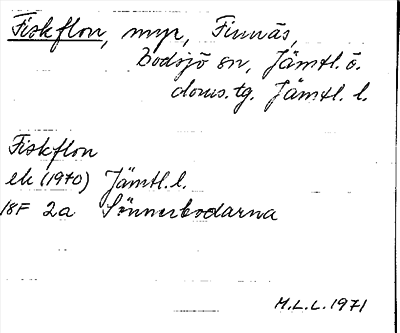 Fiskflon, myr, Finnäs,
Bodsjö sn, Jämtl. ö.
doms.tg. Jämtl. l.
Fiskflon
ek (1970) Jämtl.l.
18F 2a Sönnerbodarna
M.L.L. 1971